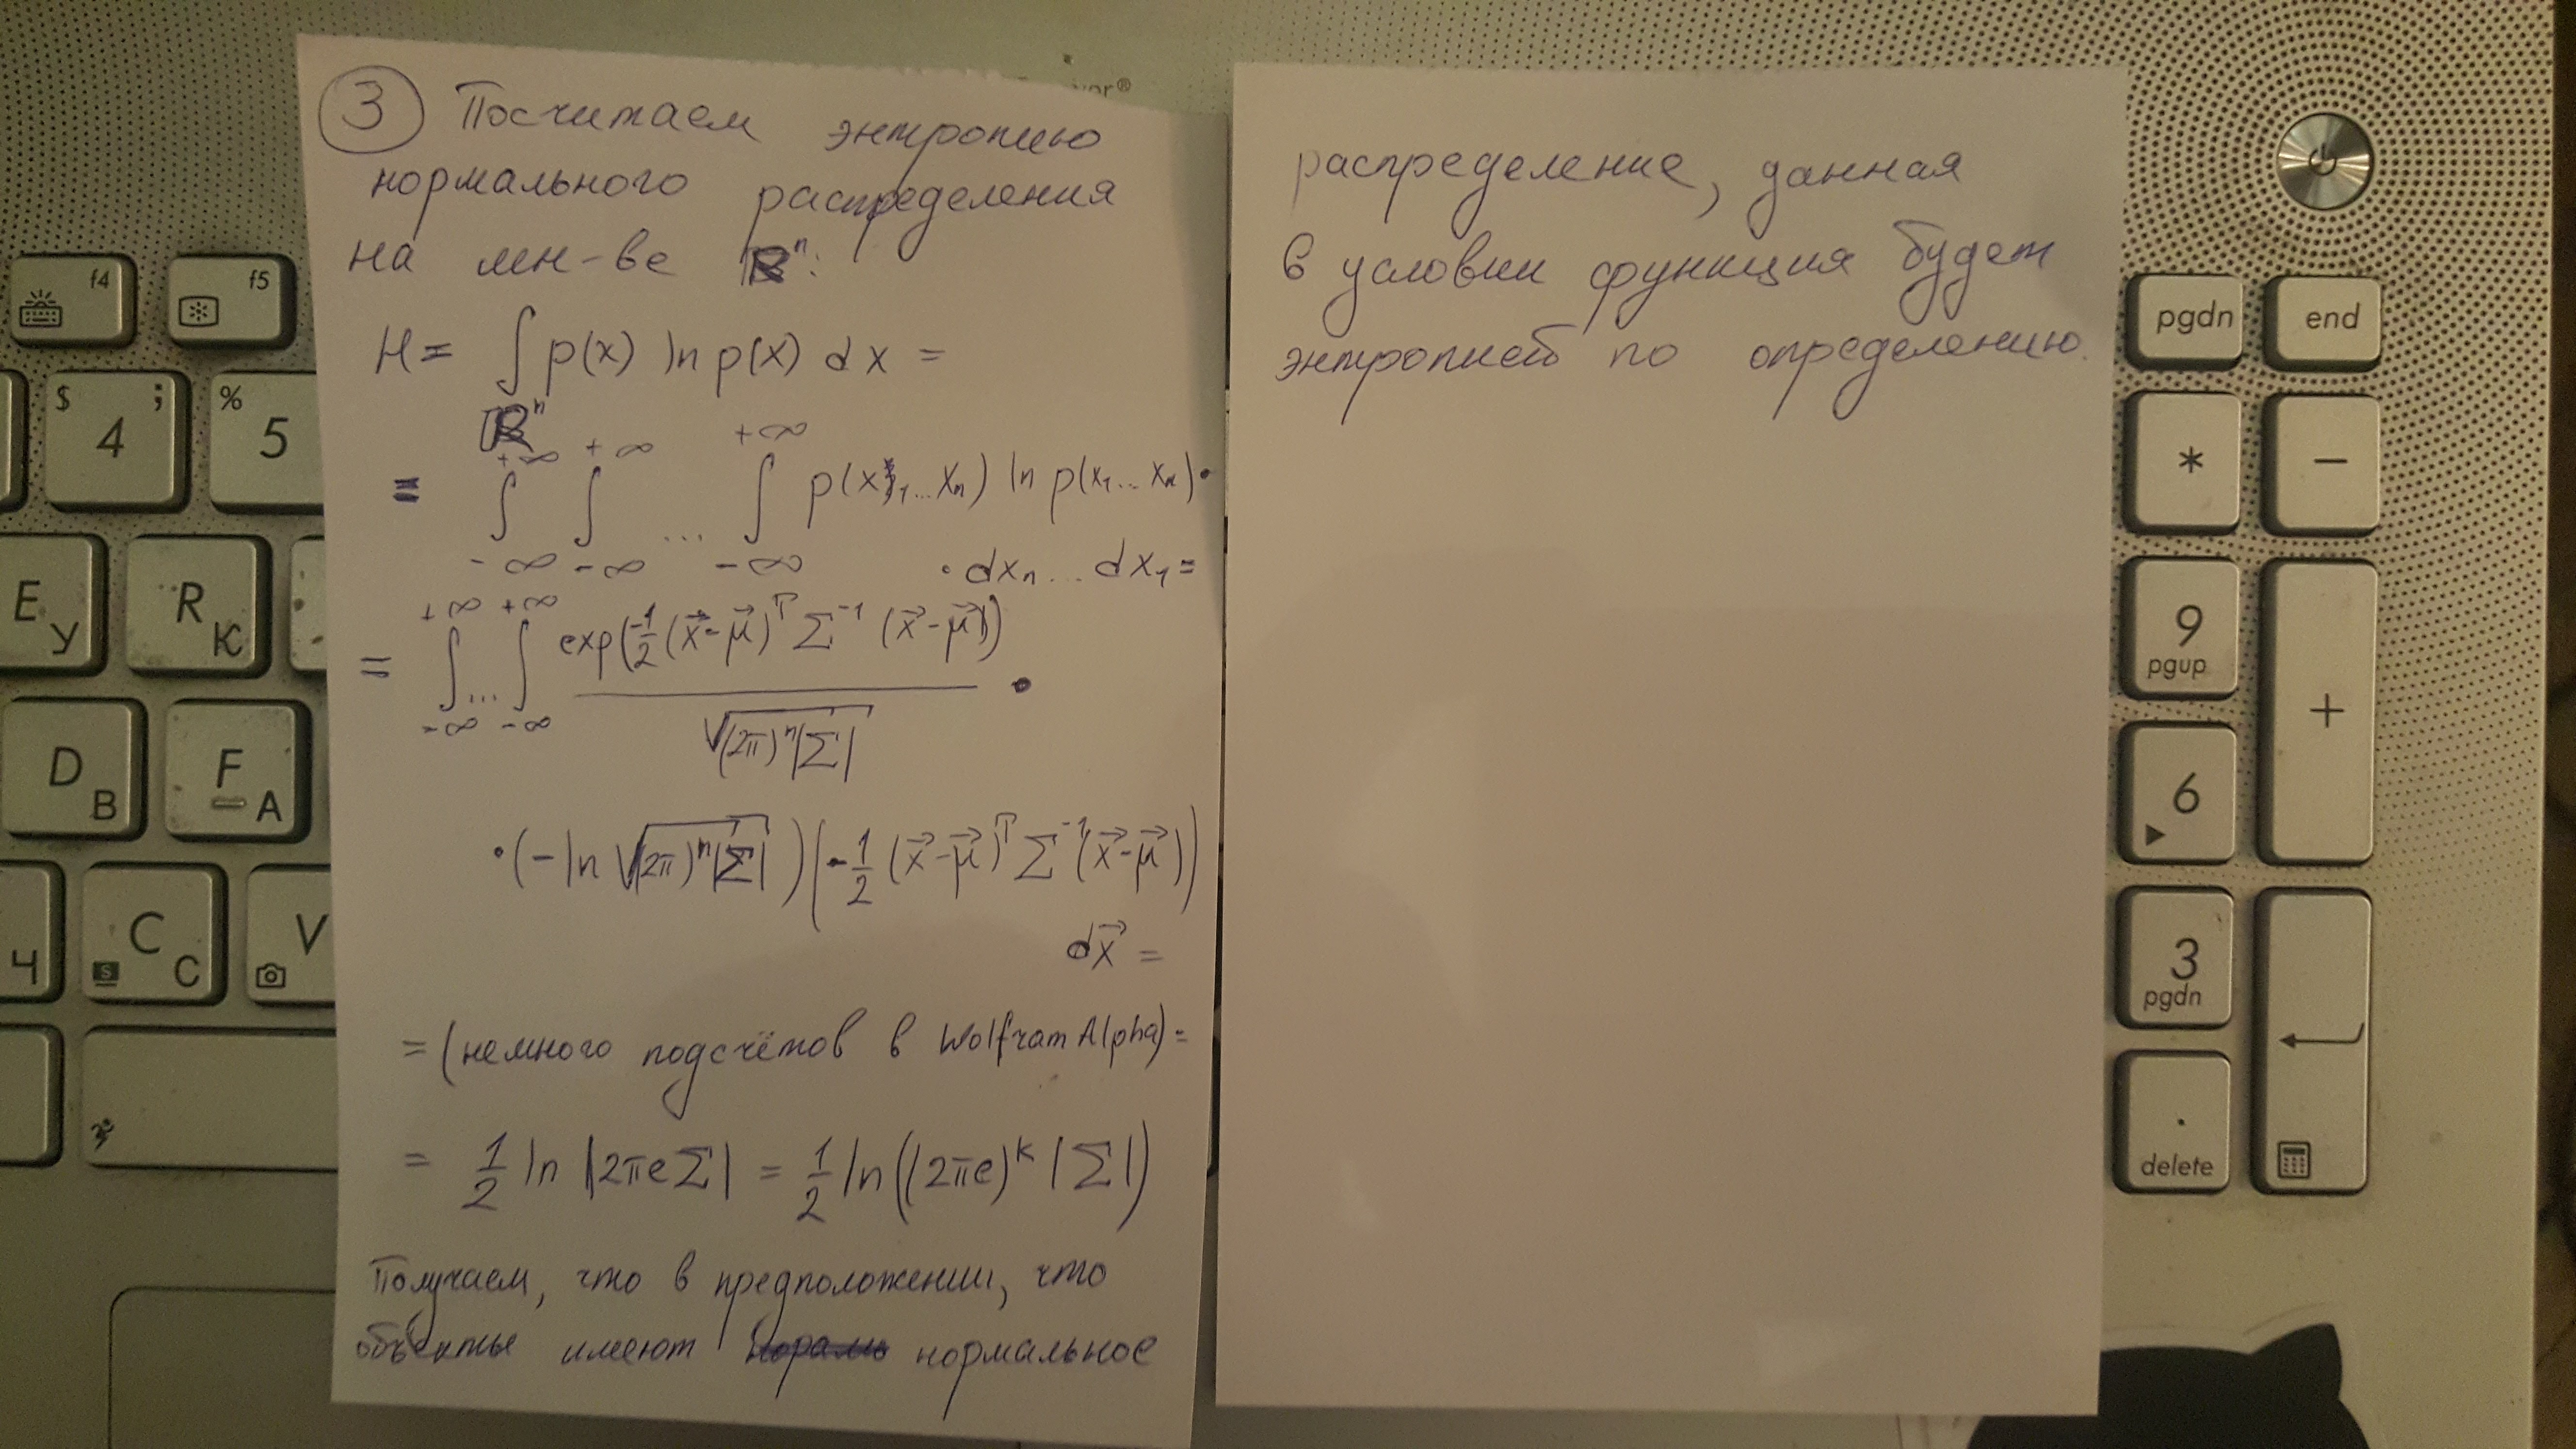 3 Посчитаем энтропию
нормального распределения
на мн-ве ℝⁿ:
H = ∫ p(x) ln p(x) dx =
ℝⁿ
+∞ +∞ +∞
= ∫ ∫ ... ∫ p(x₁...xₙ) ln p(x₁...xₙ)·
-∞ -∞ -∞ · dxₙ...dx₁ =
+∞ +∞ exp(-1/2 (x⃗-μ⃗)ᵀ Σ⁻¹ (x⃗-μ⃗))
= ∫...∫ ·
-∞ -∞ √(2π)ⁿ|Σ|
·(-ln √(2π)ⁿ|Σ|)(-1/2 (x⃗-μ⃗)ᵀ Σ⁻¹(x⃗-μ⃗))
dx⃗ =
= (немного подсчётов в WolframAlpha) =
= 1/2 ln |2πeΣ| = 1/2 ln((2πe)ᵏ |Σ|)
Получаем, что в предположении, что
объекты имеют нормальное
распределение, данная
в условии функция будет
энтропией по определению.
vor®
f4
f5
$ ; 4
% 5
E У
R К
D В
F А
Ч
C S С
V
pgdn
end
*
−
9 pgup
+
6
3 pgdn
. delete